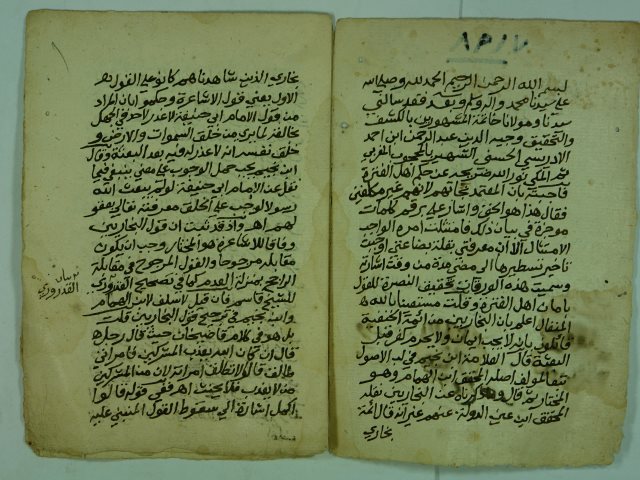 بسم الله الرحمن الرحيم الحمد لله وصلى الله
على سيدنا محمد وآله وبعد فقد سألني
سيدنا ومولانا خاتمة المشهورين بالكشف
والتحقيق وجيه الدين عبد الرحمن ابن احمد
الادريسي الحسني الشهير بالمحجوب المغربي
ثم المكي نور الله ضريحه عن حال اهل الفترة
فاجبته بان المعتمد نجاتهم لانهم غير مكلفين
فقال هذا هو الحق واشار علي برقم كلمات
موجزة في بيان ذلك فامتثلت امره الواجب
الامتثال الا ان معرفتي بقلة بضاعتي اوجبت
تاخير تسطيرها الى مضي مدة من وقت اشارته
وسميت هذه الورقات تحقيق النصرة للقول
بامان اهل الفترة وقلت مستعينا بالله
المتعال اعلم بان البخاريين من ائمة الحنفية
قائلون بانه لا يجب ايمان ولا يحرم كفر قبل
البعثة قال العلامة ابن نجيم في لب الاصول
تبعا لمولف اصله المحقق ابن الهمام وهو
المختار ثم قال وما ذكرناه عن البخاريين نقله
المحقق ابن عين الدولة عنهم غير انه قال ائمة
بخاري
بخاري الذين شاهدناهم كانوا على القول
الاول يعني قول الاشاعرة وحكموا بان المراد
من قول الامام ابي حنيفة لا عذر لاحد في الجهل
بخالقه لما يرى من خلق السموات والارض و
خلق نفسه انه لا عذر له فيه بعد البعثة وقال
ابن نجيم يجب حمل الوجوب على معنى ينبغي فيما
نقل عن الامام ابي حنيفة لو لم يبعث الله
رسولا لوجب على الخلق معرفته تعالى بعقو
لهم اهـ واذ قد ثبت ان قول البخاريين
وفاقا للاشاعرة هو المختار وجب ان يكون
مقابله مرجوحا والقول المرجوح في مقابلة
الراجح بمنزلة العدم كما في تصحيح القدوري
للشيخ قاسم فان قيل لا سلف لابن الهمام
وابن نجيم في ترجيح قول البخاريين قلت
بل هو في كلام قاضيخان حيث قال رجل
قال ان كان الله يعذب المشركين فامراتي
طالق قالوا لا تطلق امراته لان من المشركين
من لا يعذب فلا يحنث اهـ ففي قوله قالوا
اكمل اشارة الى سقوط القول المنبني عليه
القدوري